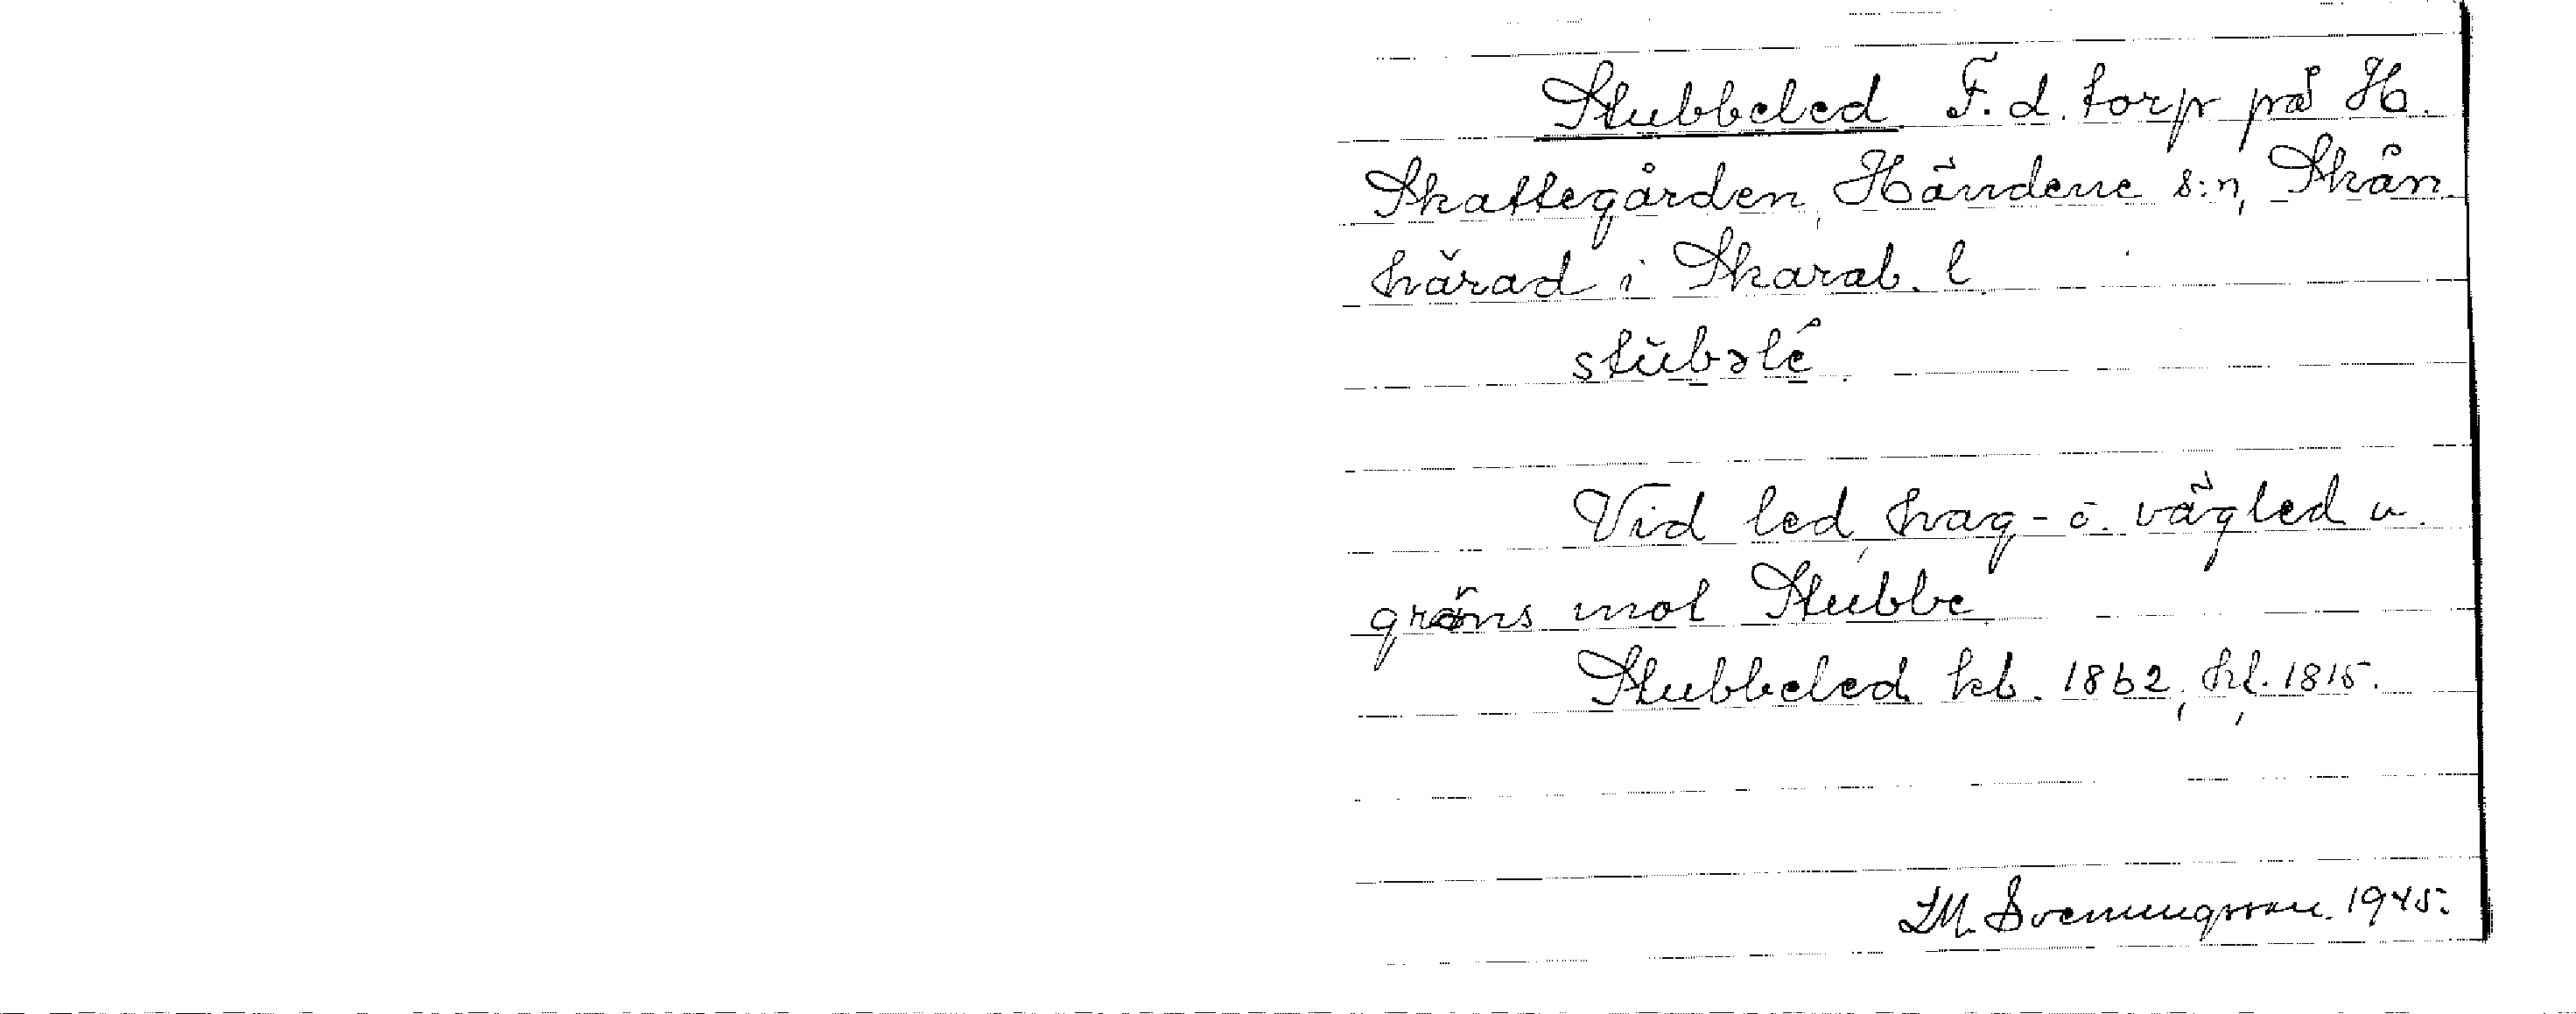 Stubbeled. F. d. torp på H.
Skattegården, Händene s:n, Skån.
härad i Skarab. l.
stùbəlé.
Vid led, hag- o. vägled u.
gräns mot Stubbe.
Stubbeled kb. 1862, hf. 1815.
I.M. Svenungsson. 1945.